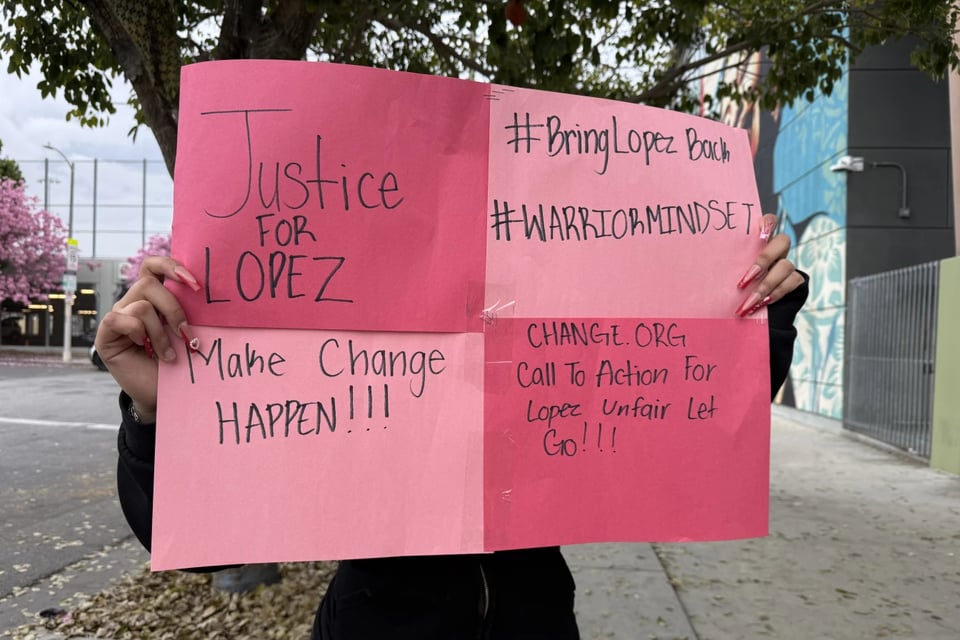 Justice
FOR
LOPEZ
#BringLopez Back
#WARRIORMINDSET
Make Change
HAPPEN!!!
CHANGE.ORG
Call To Action For
Lopez Unfair Let
Go!!!